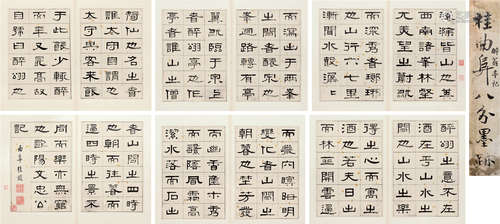 桂曲阜八分墨
醉翁亭記
環滁皆山也其
西南諸峰林壑
尤美望之蔚然
而深秀者瑯琊
也山行六七里
漸聞水聲潺潺
而瀉出于兩峰
之間者釀泉也
峰回路轉有亭
翼然臨于泉上
者醉翁亭也作
亭者誰山之僧
智仙也名之者
誰太守自謂也
太守與客來飲
于此飲少輒醉
而年又最高故
自號曰醉翁也
醉翁之意不在
酒在乎山水之
間也山水之樂
得之心而寓之
酒也若夫日出
而林霏開雲歸
而巖穴暝晦明
變化者山間之
朝暮也野芳發
而幽香佳木秀
而繁陰風霜高
潔水落而石出
者山間之四時
也朝而往暮而
歸四時之景不
同而樂亦無窮
也歐陽文忠公
記